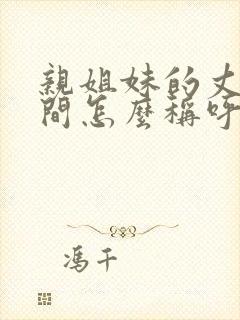 親姐妹的丈
間怎麼稱呼
馮千